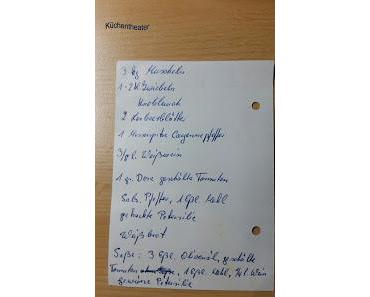 Küchentheater
3 kg Muscheln
1-2 kl. Zwiebeln
Knoblauch
2 Lorbeerblätter
1 Messerspitze Cayennepfeffer
3/4 l. Weißwein
1 gr. Dose geschälte Tomaten
Salz, Pfeffer, 1 Eßl. Mehl
gehackte Petersilie
Weißbrot
Soße: 3 Eßl. Olivenöl, geschälte
Tomaten, 1 Eßl. Mehl, 1/4 l. Wein
Petersilie